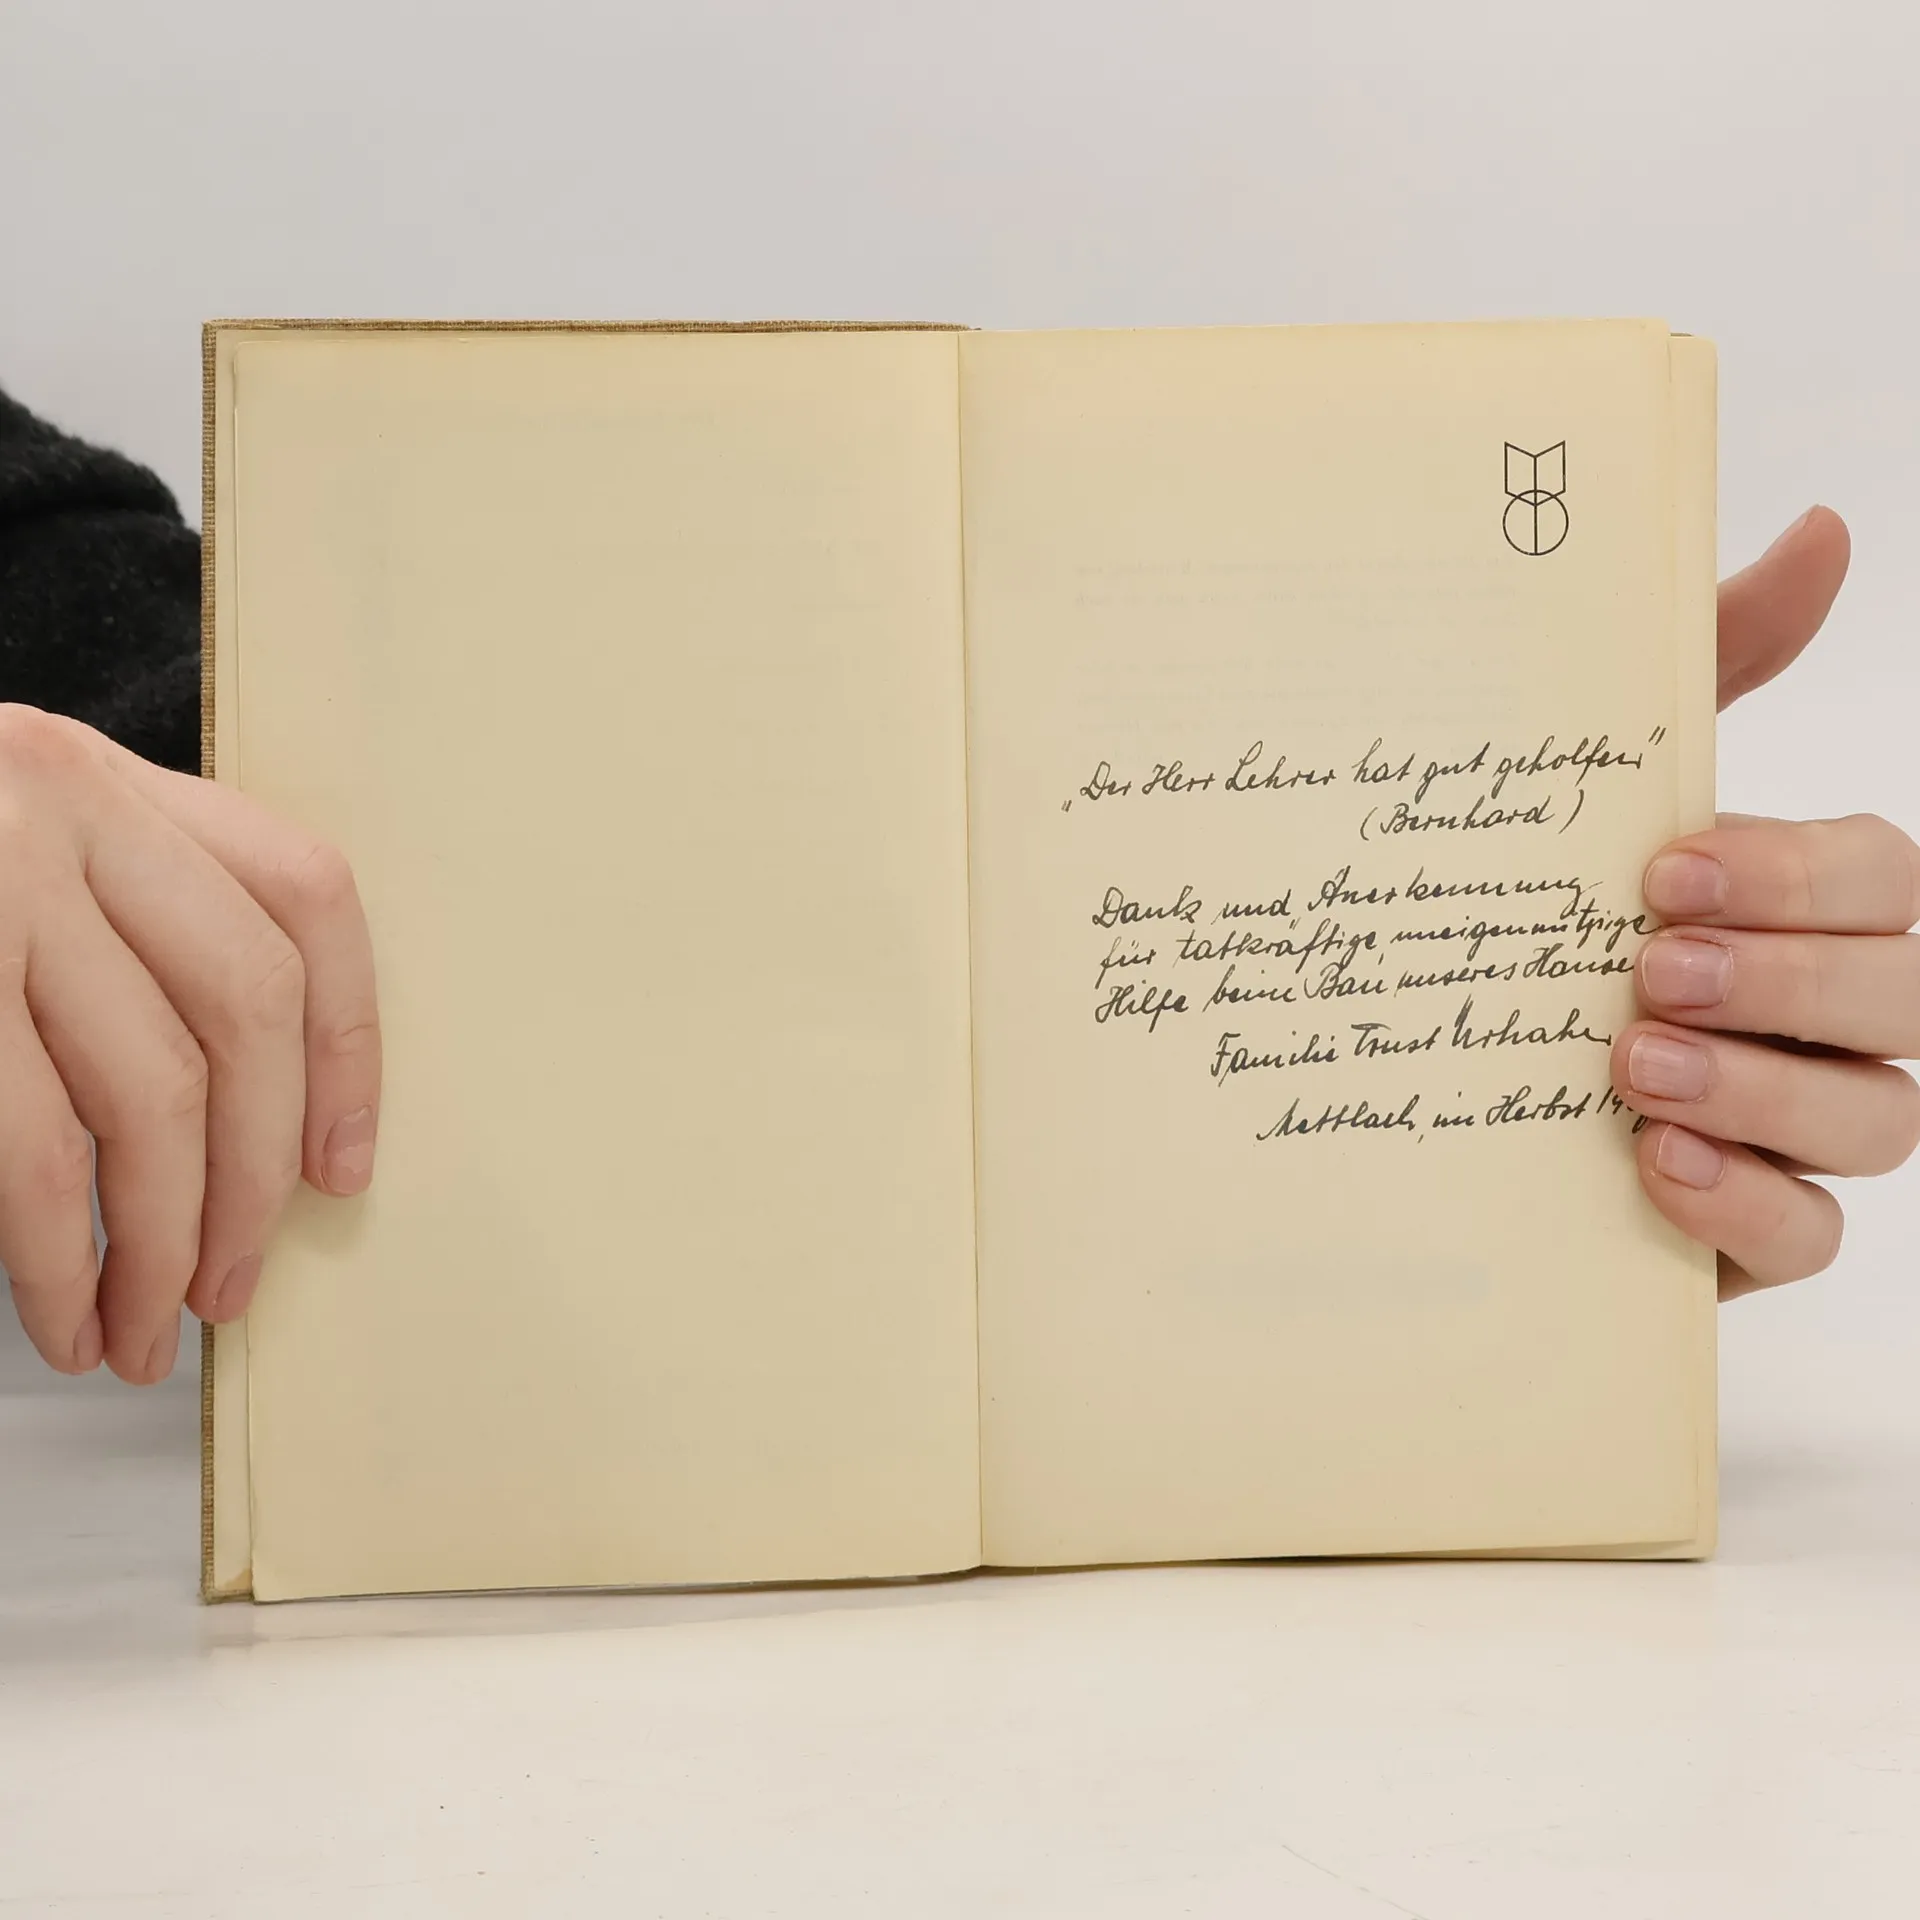 „Der Herr Lehrer hat gut geholfen"
(Bernhard)
Dank und Anerkennung
für tatkräftige, uneigennützige
Hilfe beim Bau unseres Hause
Familie
Mettlach, im Herbst 19